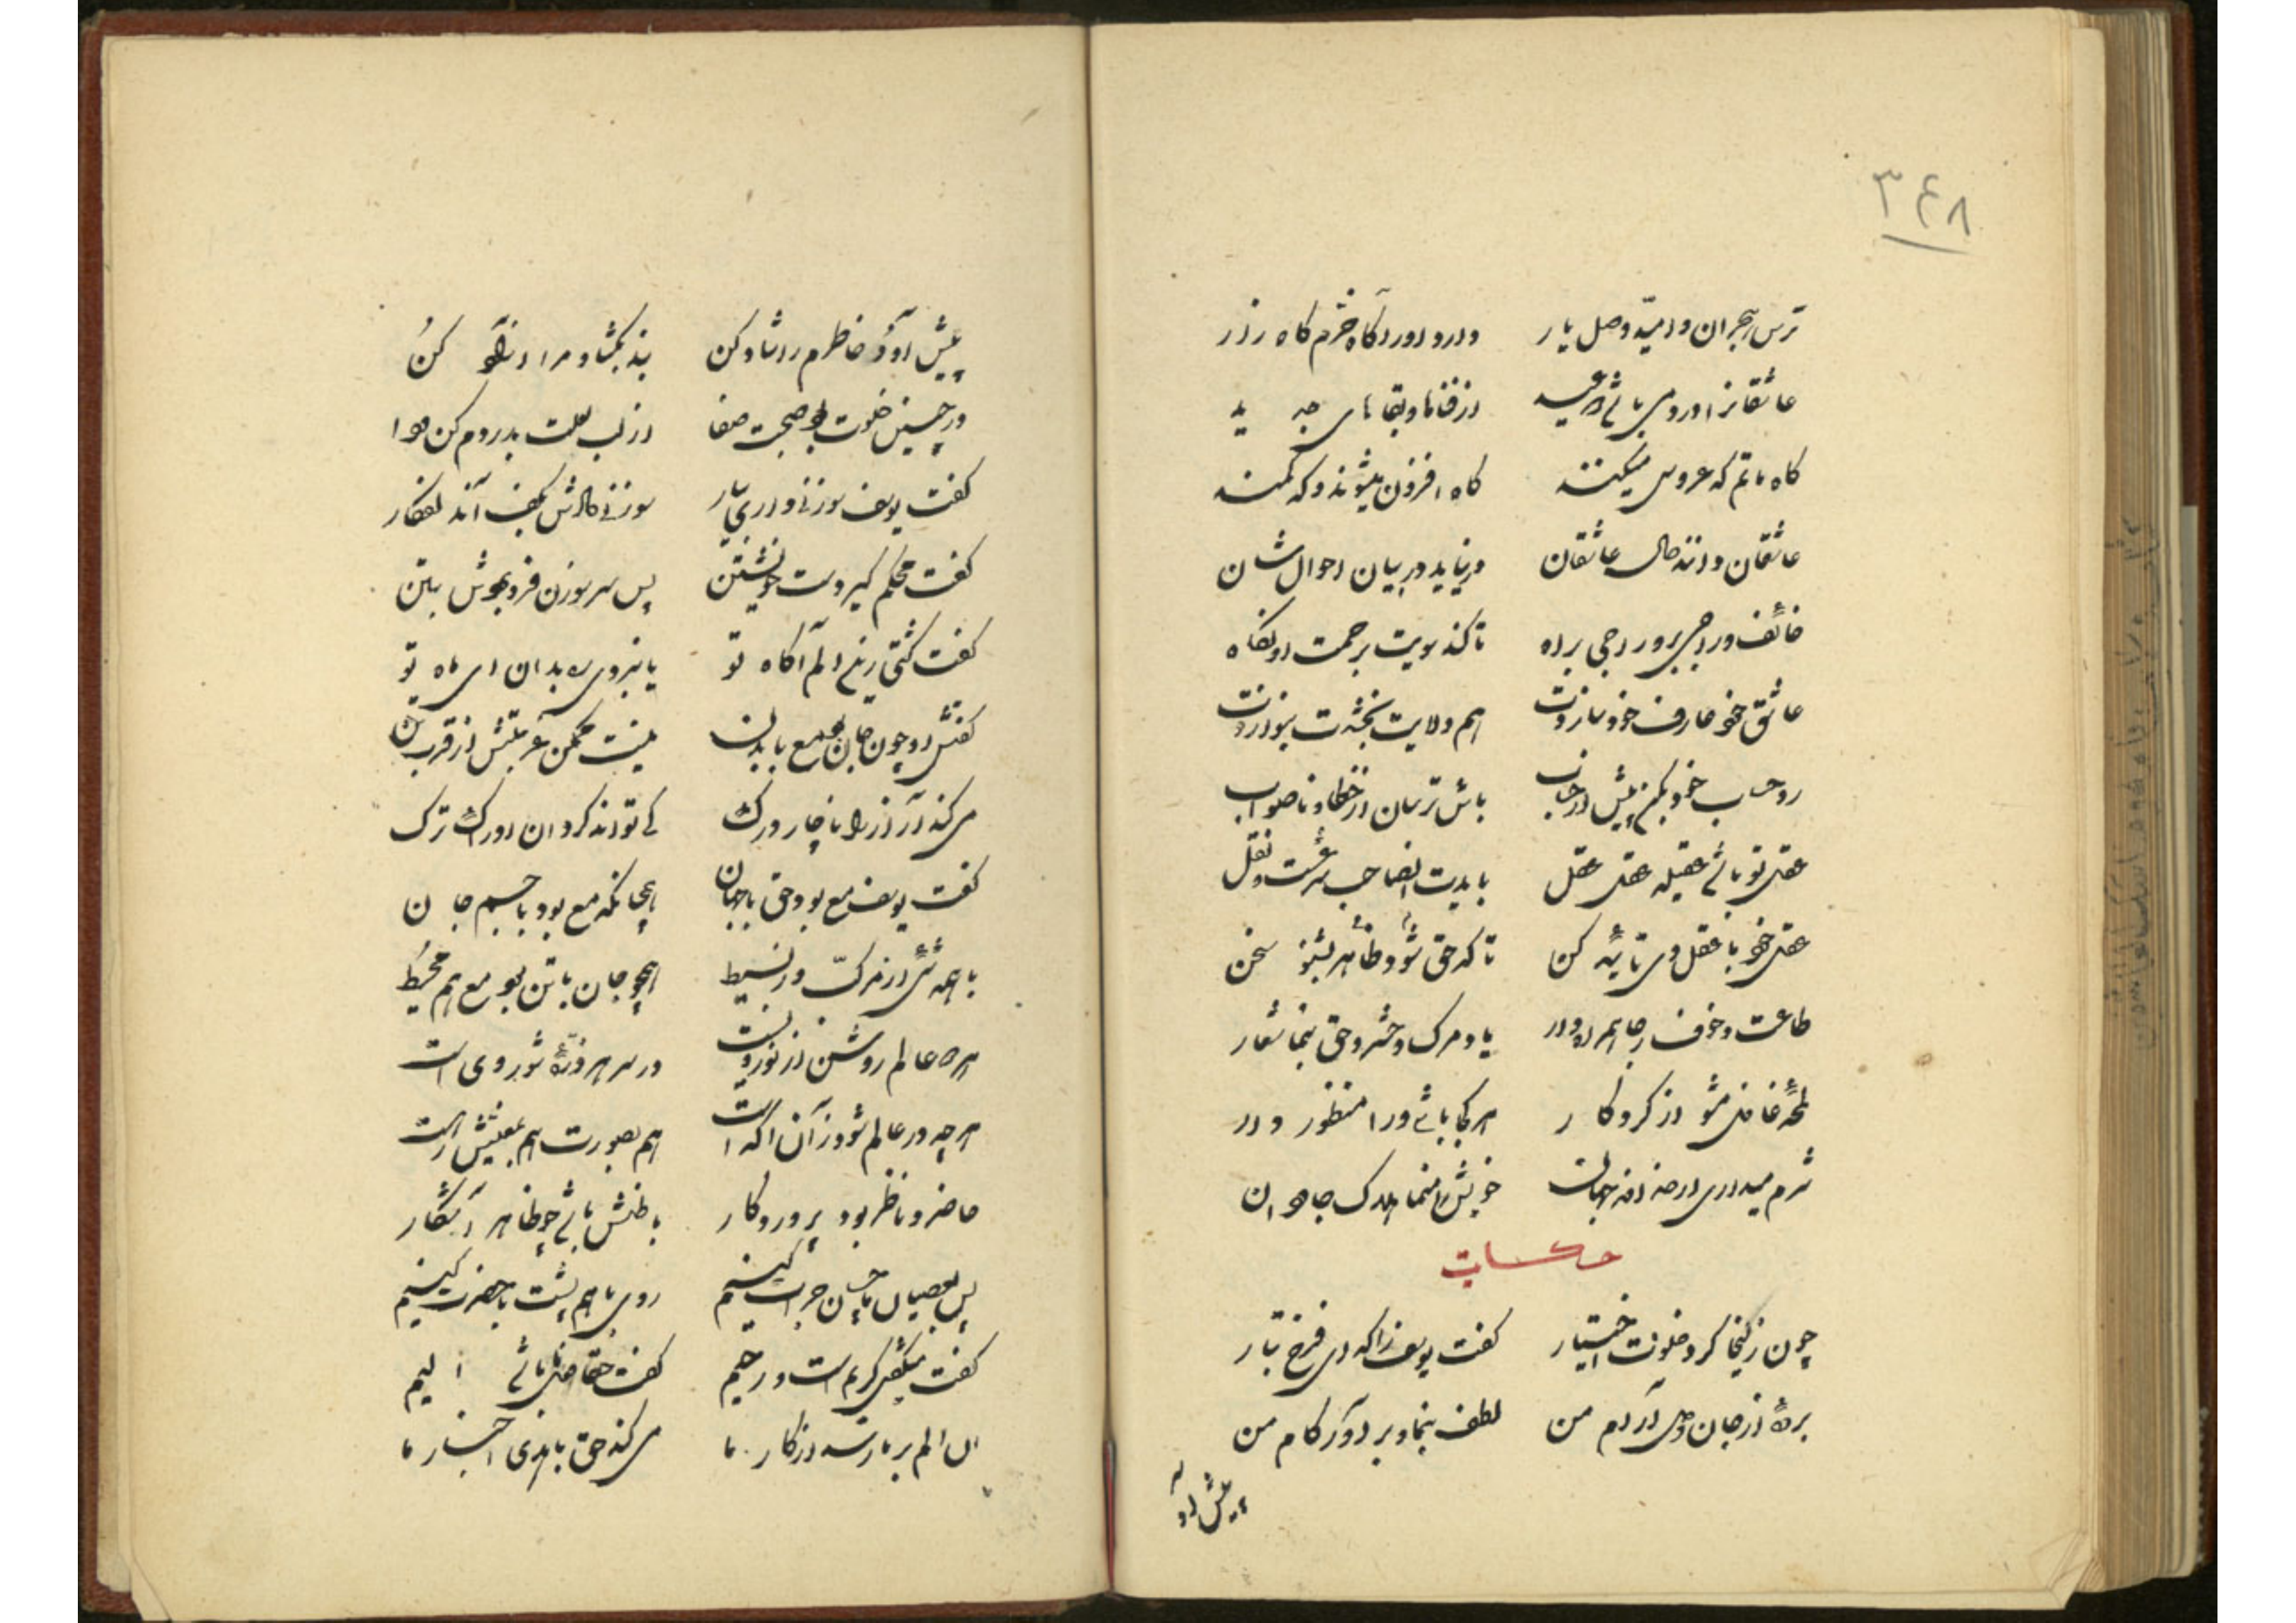 ۳۴۸
ترس هجران و امید وصل یار دارد او را گاه خرم گاه زار
عاشقانرا دردمی باشد عید از فناها و بقاهای جدید
گاه ماتم گه عروسی میکنند گاه افزون میشوند و گه کمند
عاشقان دانند حال عاشقان در نیاید در بیان احوالشان
خائف و راجی برو راجی براه تا کند سویت برحمت او نگاه
عاشق خود عارف خود سازدت هم ولایت بخشدت بنوازدت
رو حساب خود بکن پیش از حساب باش ترسان از خطا و ناصواب
عقل تو باشد عقیله عقل عقل بایدت
عقل خود با عقل وی تا یه کن تا که حق شود ظاهر بشنو سخن
طاعت و خوف و رجا همراه دار یاد مرگ و حشر و حق بنما شعار
لمحهٔ غافل مشو از کردگار هر کجا باشی ورا منظور دار
شرم میداری از خویش را منما هلاک جاودان
حکایت
چون زلیخا کرد خلوت اختیار گفت یوسف را که ای فرخ تبار
بردهٔ از جان و دل آرام من لطف بنما و برآور کام من
پیش آو
پیش آ و خاطرم را شاد کن بند بگشا و مرا آزاد کن
در چنین خلوت بود صحبت صفا از لب لعلت بدردم کن دوا
گفت یوسف سوزنی داری بیار سوزنی دادش بکف آن دلفکار
گفت محکم گیر دست خویشتن پس سر سوزن فرو بردش بتن
گفت گشتی زین الم آگاه تو یا نبردی ره بدان ای ماه تو
گفتش او چون جان بود مع با بدن نیست ممکن غربتش از قرب تن
می کند آزار را ناچار درک کی تواند کرد آن ادراک ترک
گفت یوسف مع بود حق با جهان همچنانکه مع بود با جسم جان
با همه شئی از مرکب وز بسیط همچو جان با تن بود مع هم محیط
هر دو عالم روشن از نور ویست در سر هر ذرهٔ شور وی است
هر چه در عالم شود زآن آگه است هم بصورت هم بمعنیش ره است
حاضر و ناظر بود پروردگار باطنش باشد چو ظاهر آشکار
پس بعصیان ما چسان جرأت کنیم روی با هم پشت با حضرت کنیم
گفت میگفتی کریم است و رحیم گفت حقا باشد الیم
این الم بر ما رسد از کار ما می کند حق باهزی اختیار ما